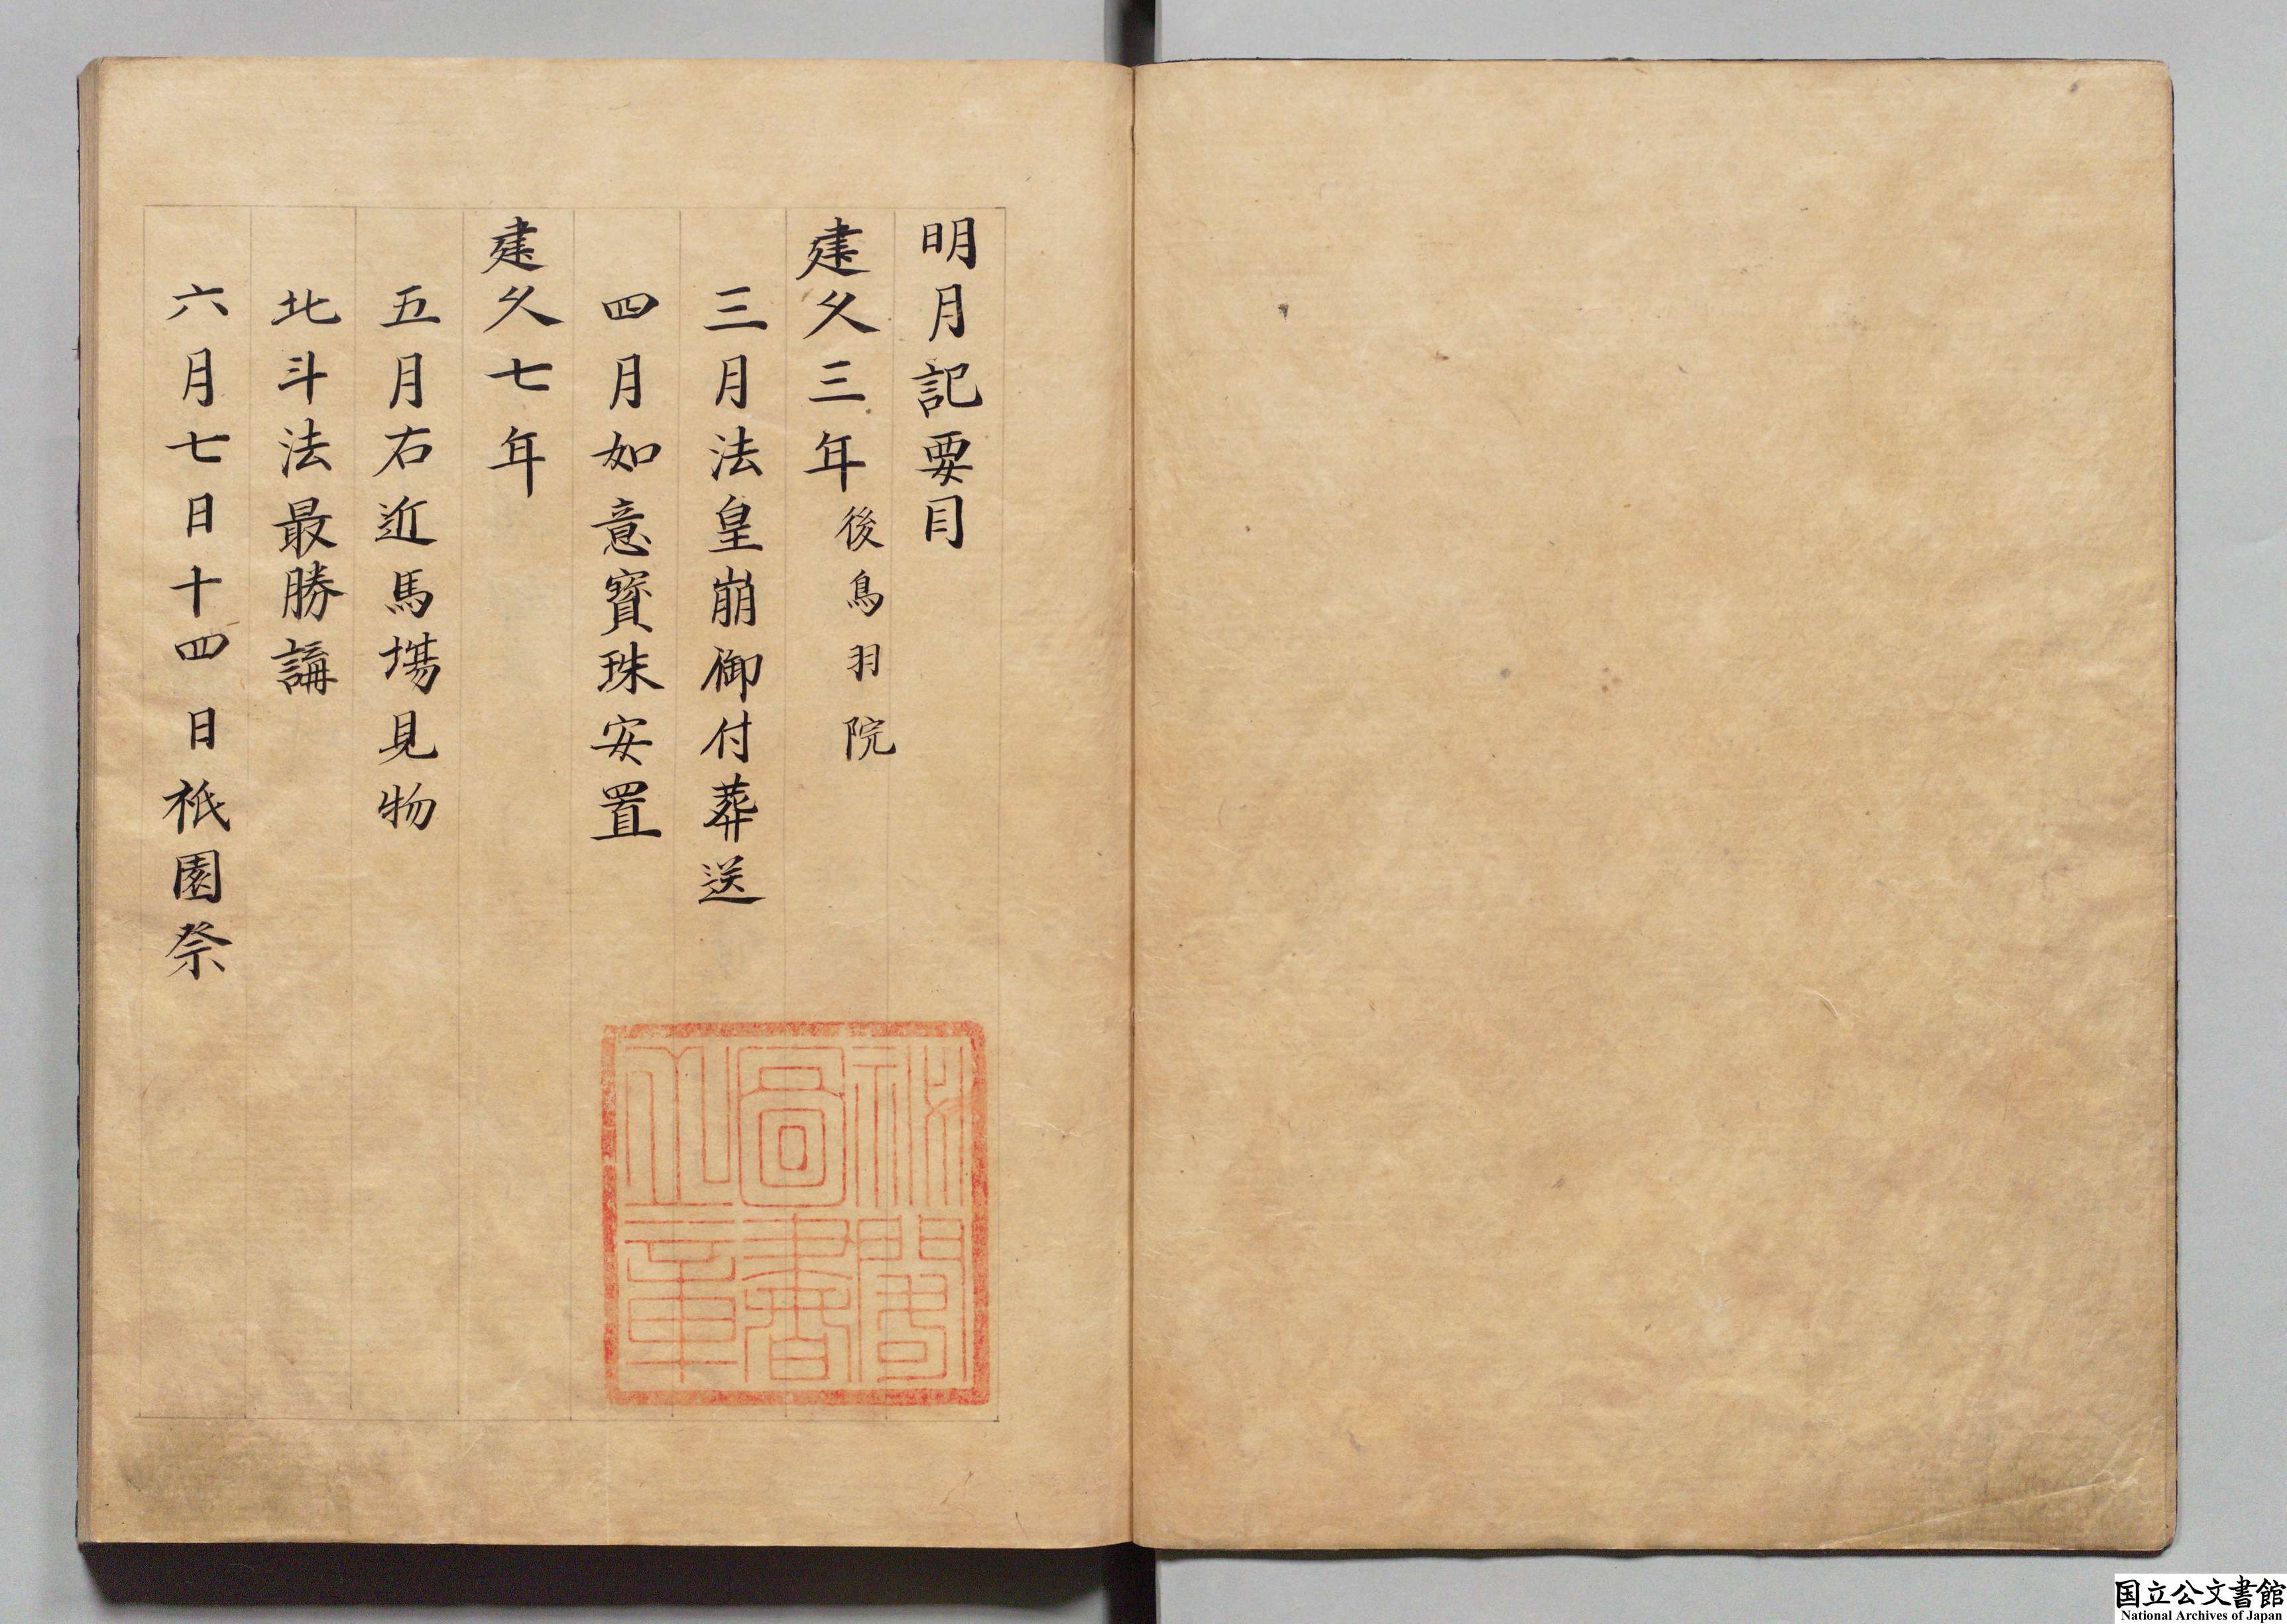 明月記要目
建久三年 後鳥羽院
三月法皇崩御付葬送
四月如意寳珠安置
建久七年
五月右近馬塲見物
北斗法最勝講
六月七日十四日祇園祭
秘閣
圖書
之章
国立公文書館
National Archives of Japan